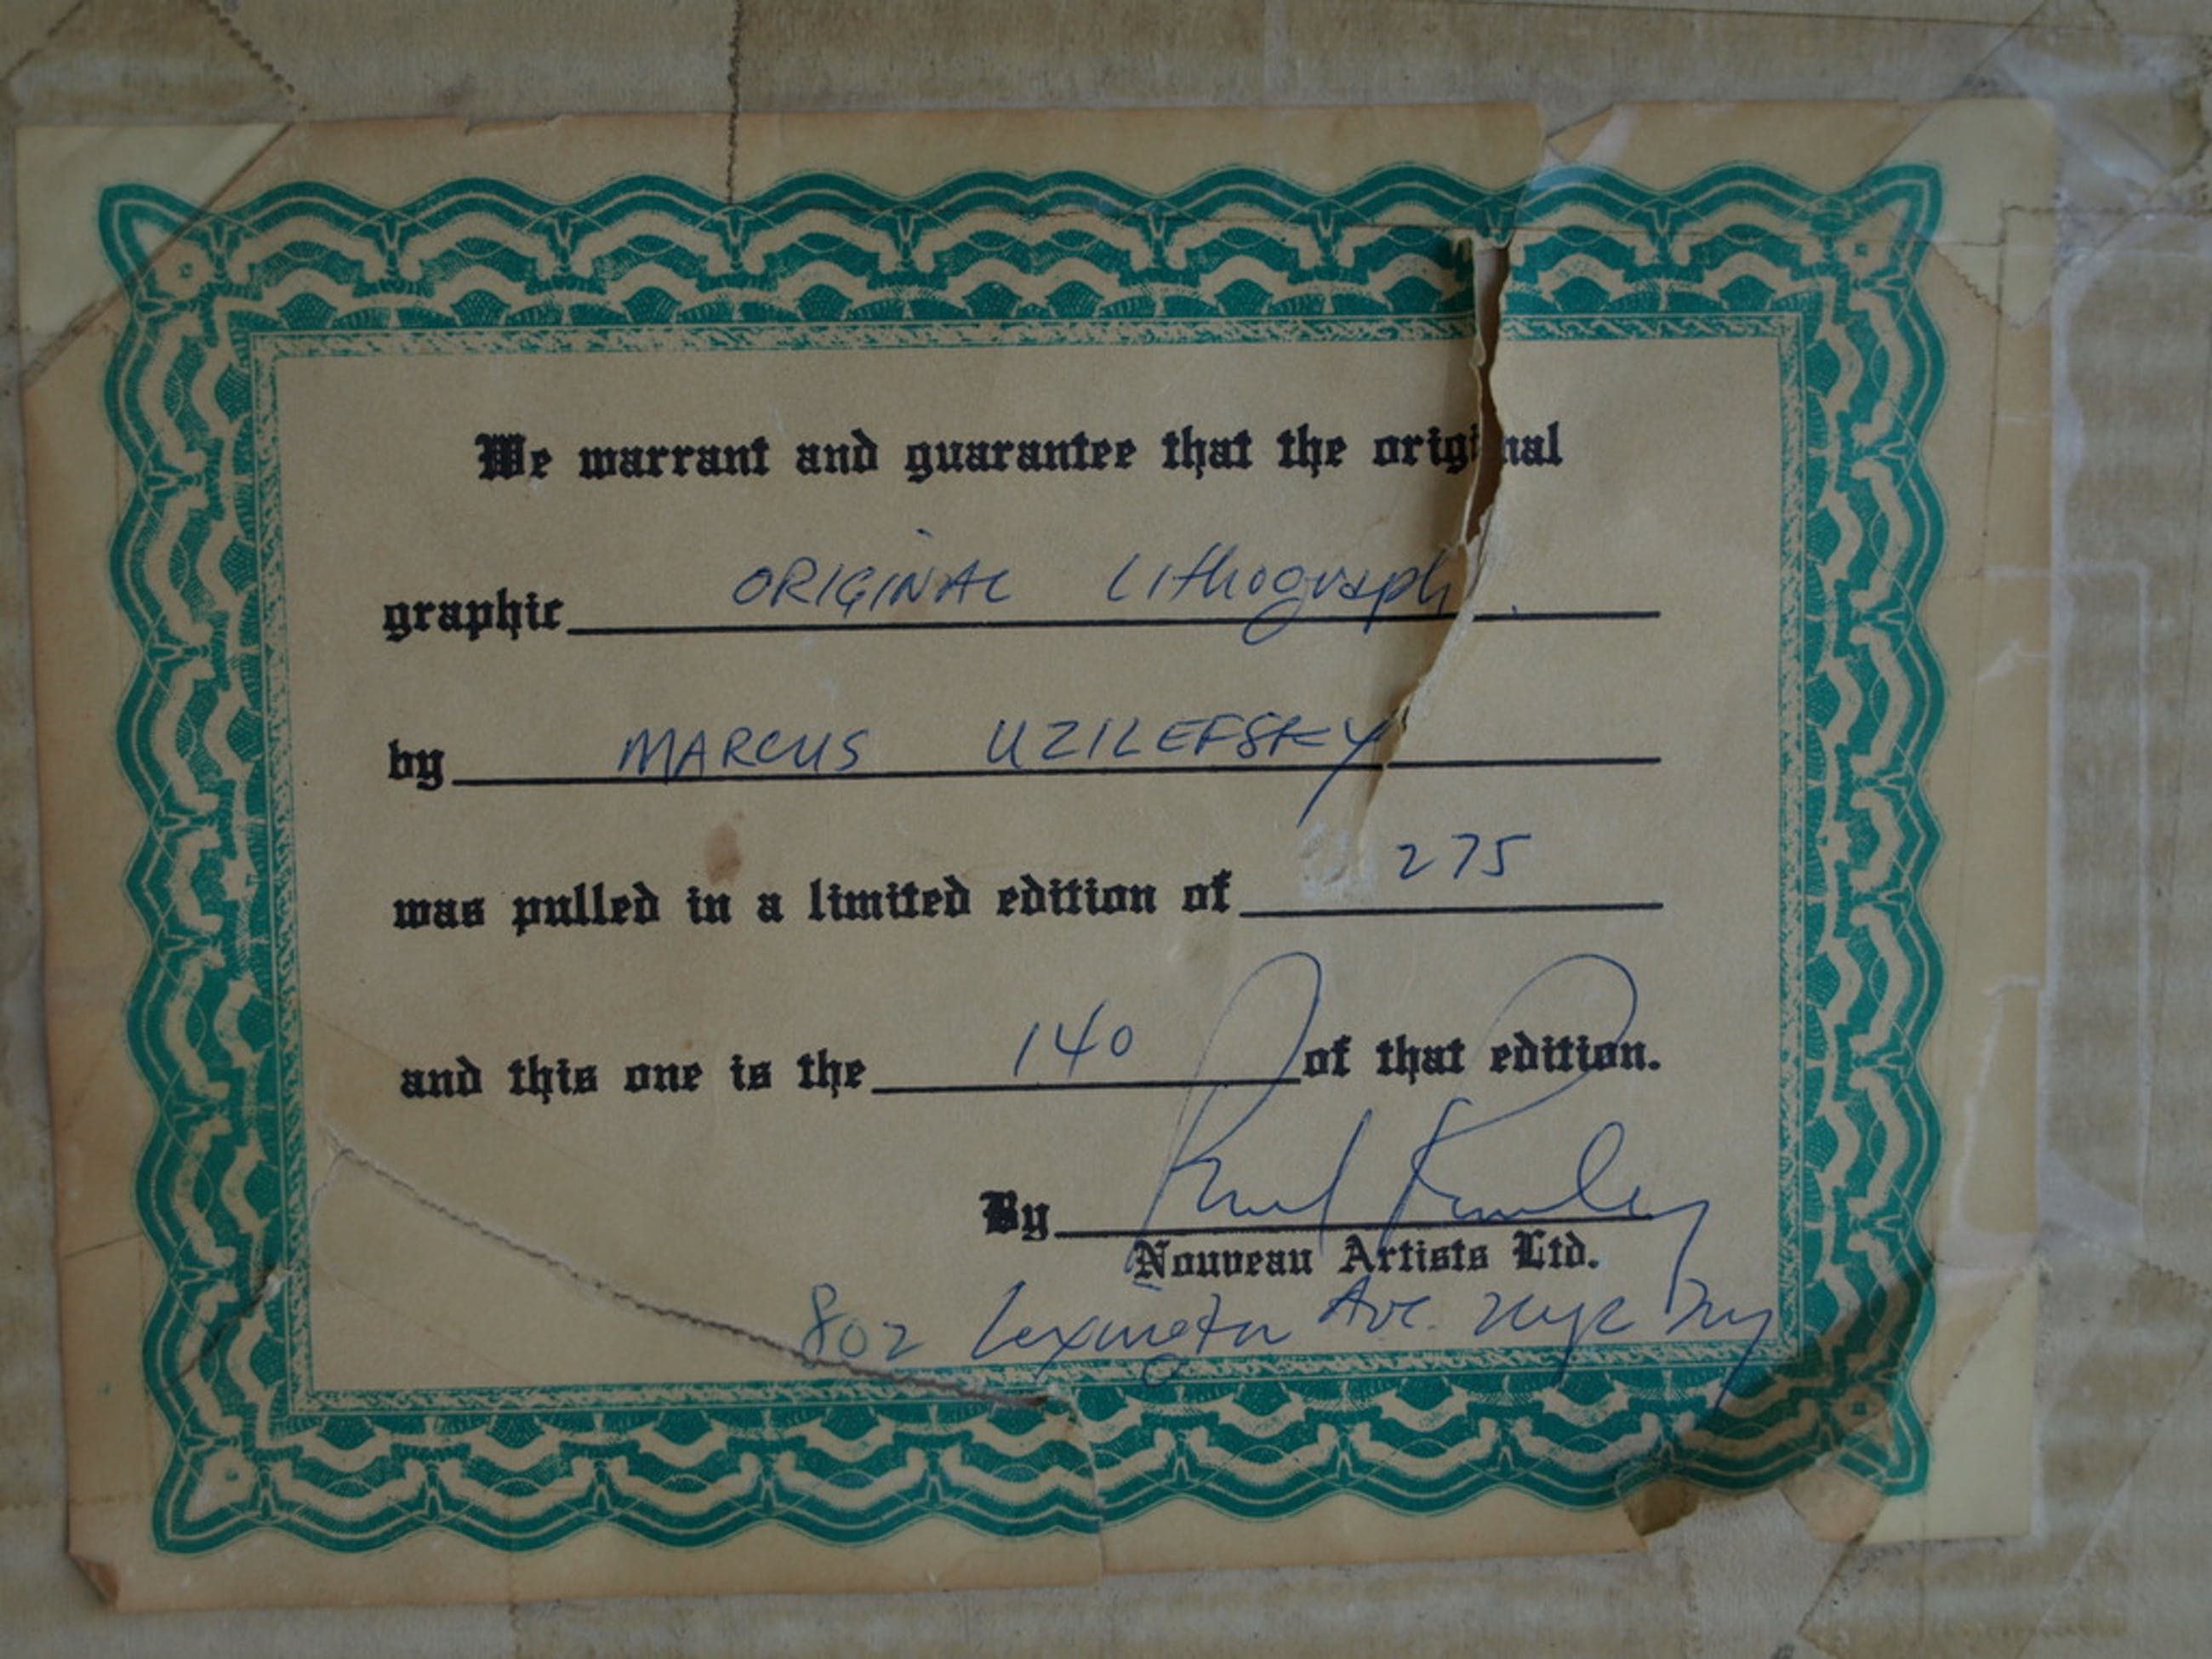 We warrant and guarantee that the original
graphic ORIGINAL Lithograph
by MARCUS UZILEFSKY
was pulled in a limited edition of 275
and this one is the 140 of that edition.
By
Nouveau Artists Ltd.
802 Lexington Ave. NYC NY